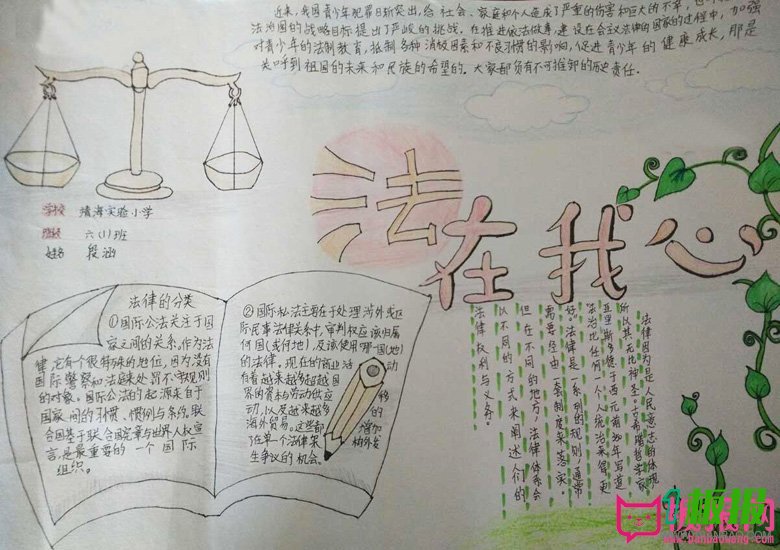 近来,我国青少年犯罪日渐突出,给 社会、家庭和个人造成了严重的伤害和巨大的不幸,也
法治国的战略目标提出了严峻的挑战。在推进依法做事,建设社会主义法律的国家的过程中,加强
对青少年的法制教育,抵制各种消极因素和不良习惯的影响,促进青少年的健康成长,那是
关呼到祖国的未来和民族的希望的。大家都负有不可推卸的历史责任.
学校 靖海实验小学
班级 六(1)班
姓名 段涵
法在我心
法律的分类
①国际公法关注于国
家之间的关系,作为法
律它有个很特殊的地位,因为没有
国际警察和法庭来处罚不
的对象。国际公法的起源来自于
国家间的习惯、惯例与条约,联
合国基于联合国宪章与世界人权宣
言,是最重要的一个国际
组织。
②国际私法主要在于处理涉外或区
际民事法律关系中,审判权应该归属
何国(或何地)及该使用哪一国(地)
的法律。现在的商业活动
有着越来越多超越国
界的资本与劳动供应移
动,以及越来越多的
海外贸易。这些都增加
了在单个法律架构外发
生争议的机会。
法律因为是人民意志的体现
所以其无比神圣。古希腊哲学家
亚里斯多德于西元前如年写道
法治比任何一个人统治来得更
好。法律是一系列的规则,通常
需要经由一套制度来落实
但在不同的地方,法律体系会
以不同的方式来阐述人们的
法律权利与义务。
板报网
www.banbaowang.com